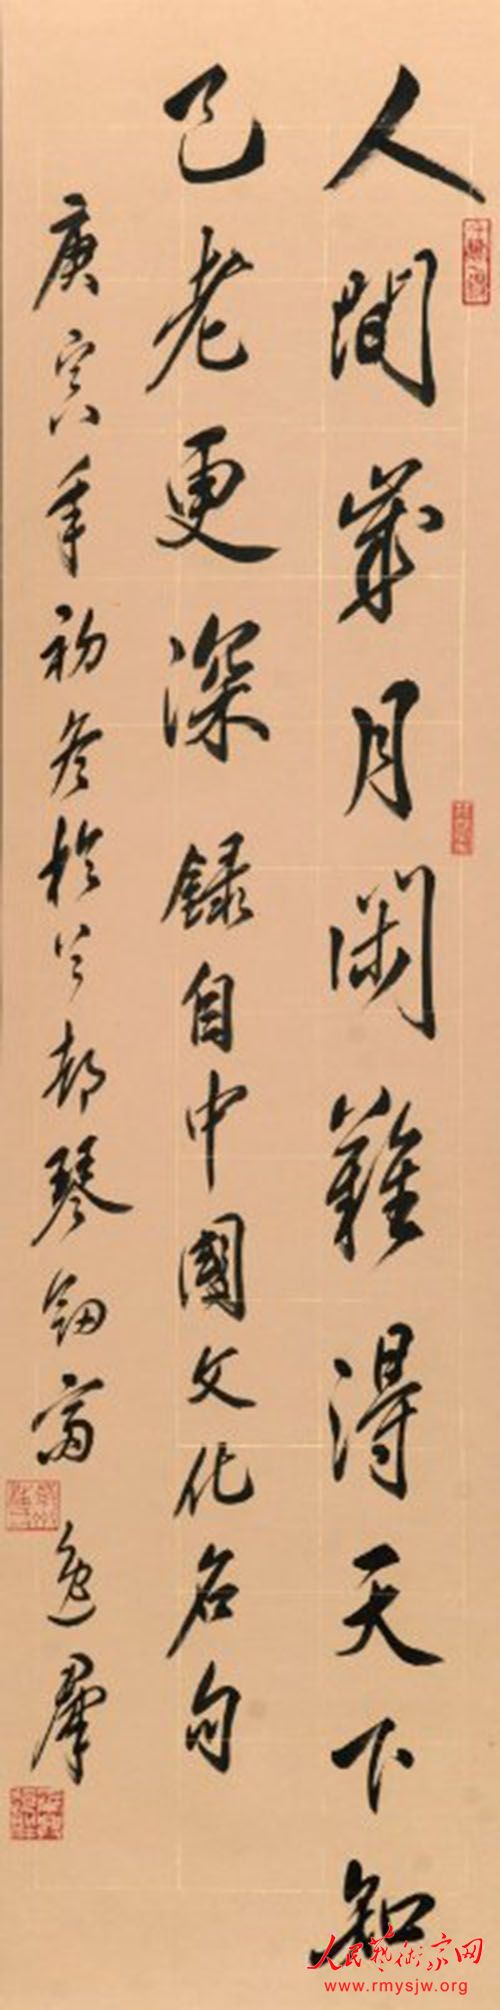 人間歲月閑難得天下知
己老更深 錄自中國文化名句
庚寅年初冬於都琴釼齋 逸羣
人民藝術家网
www.rmysjw.org